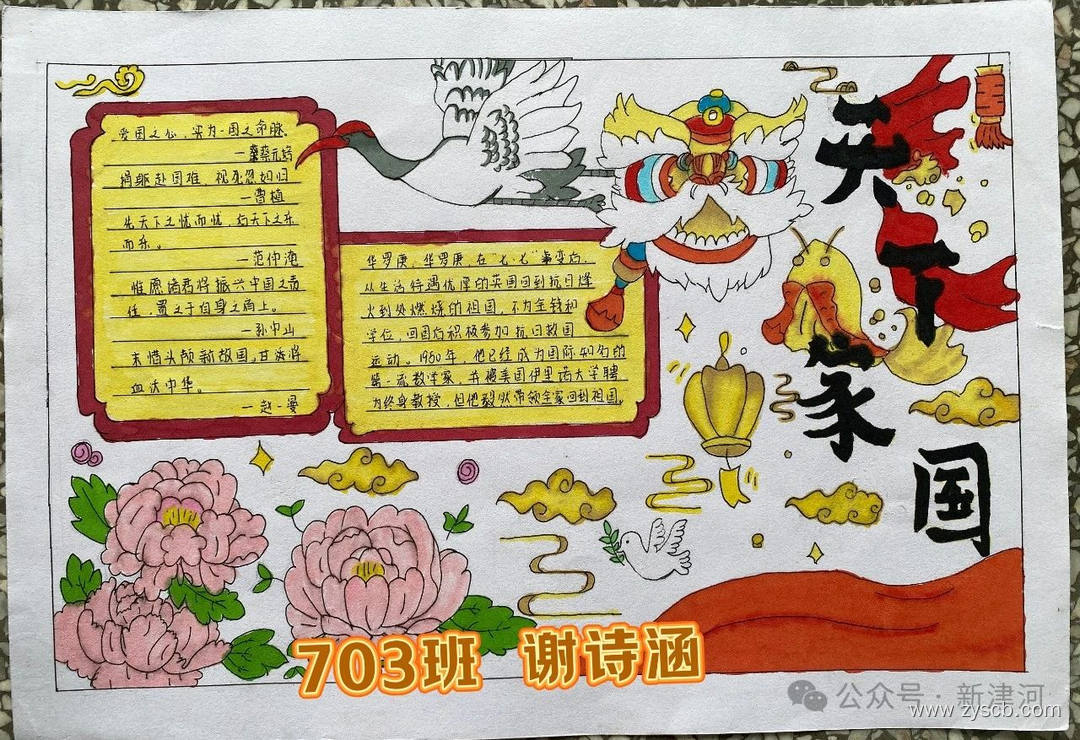 爱国之心,实为一国之命脉。
一蔡元培
捐躯赴国难,视死忽如归
一曹植
先天下之忧而忧,后天下之乐
而乐。
一范仲淹
惟愿诸君将振兴中国之责
任,置之于自身之肩上。
一孙中山
未惜头颅新故国,甘将
血沃中华。
一赵一曼
华罗庚,华罗庚,在"七·七"事变后,
从生活待遇优厚的英国回到抗日烽
火到处燃烧的祖国,不为金钱和
学位,回国后积极参加抗日救国
运动。1950年,他已经成为国际知名的
第一流数学家,并被美国伊里诺大学聘
为终身教授,但他毅然带领全家回到祖国。
天下家国
703班 谢诗涵
公众号·新津河
www.zyscb.com